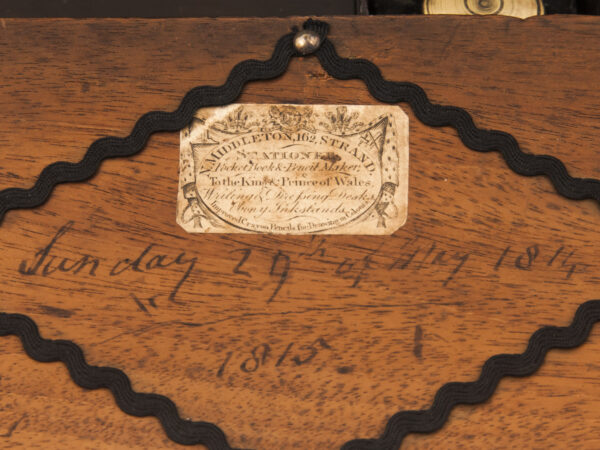 MIDDLETON, 162, STRAND,
STATIONER
Pocket Book & Pencil Maker,
To the King & Prince of Wales,
Writing & Dressing Desks
Ebony Inkstands
Improved Crayon Pencils for Drawing in Colours
Sunday 29th of May 1814
1815.